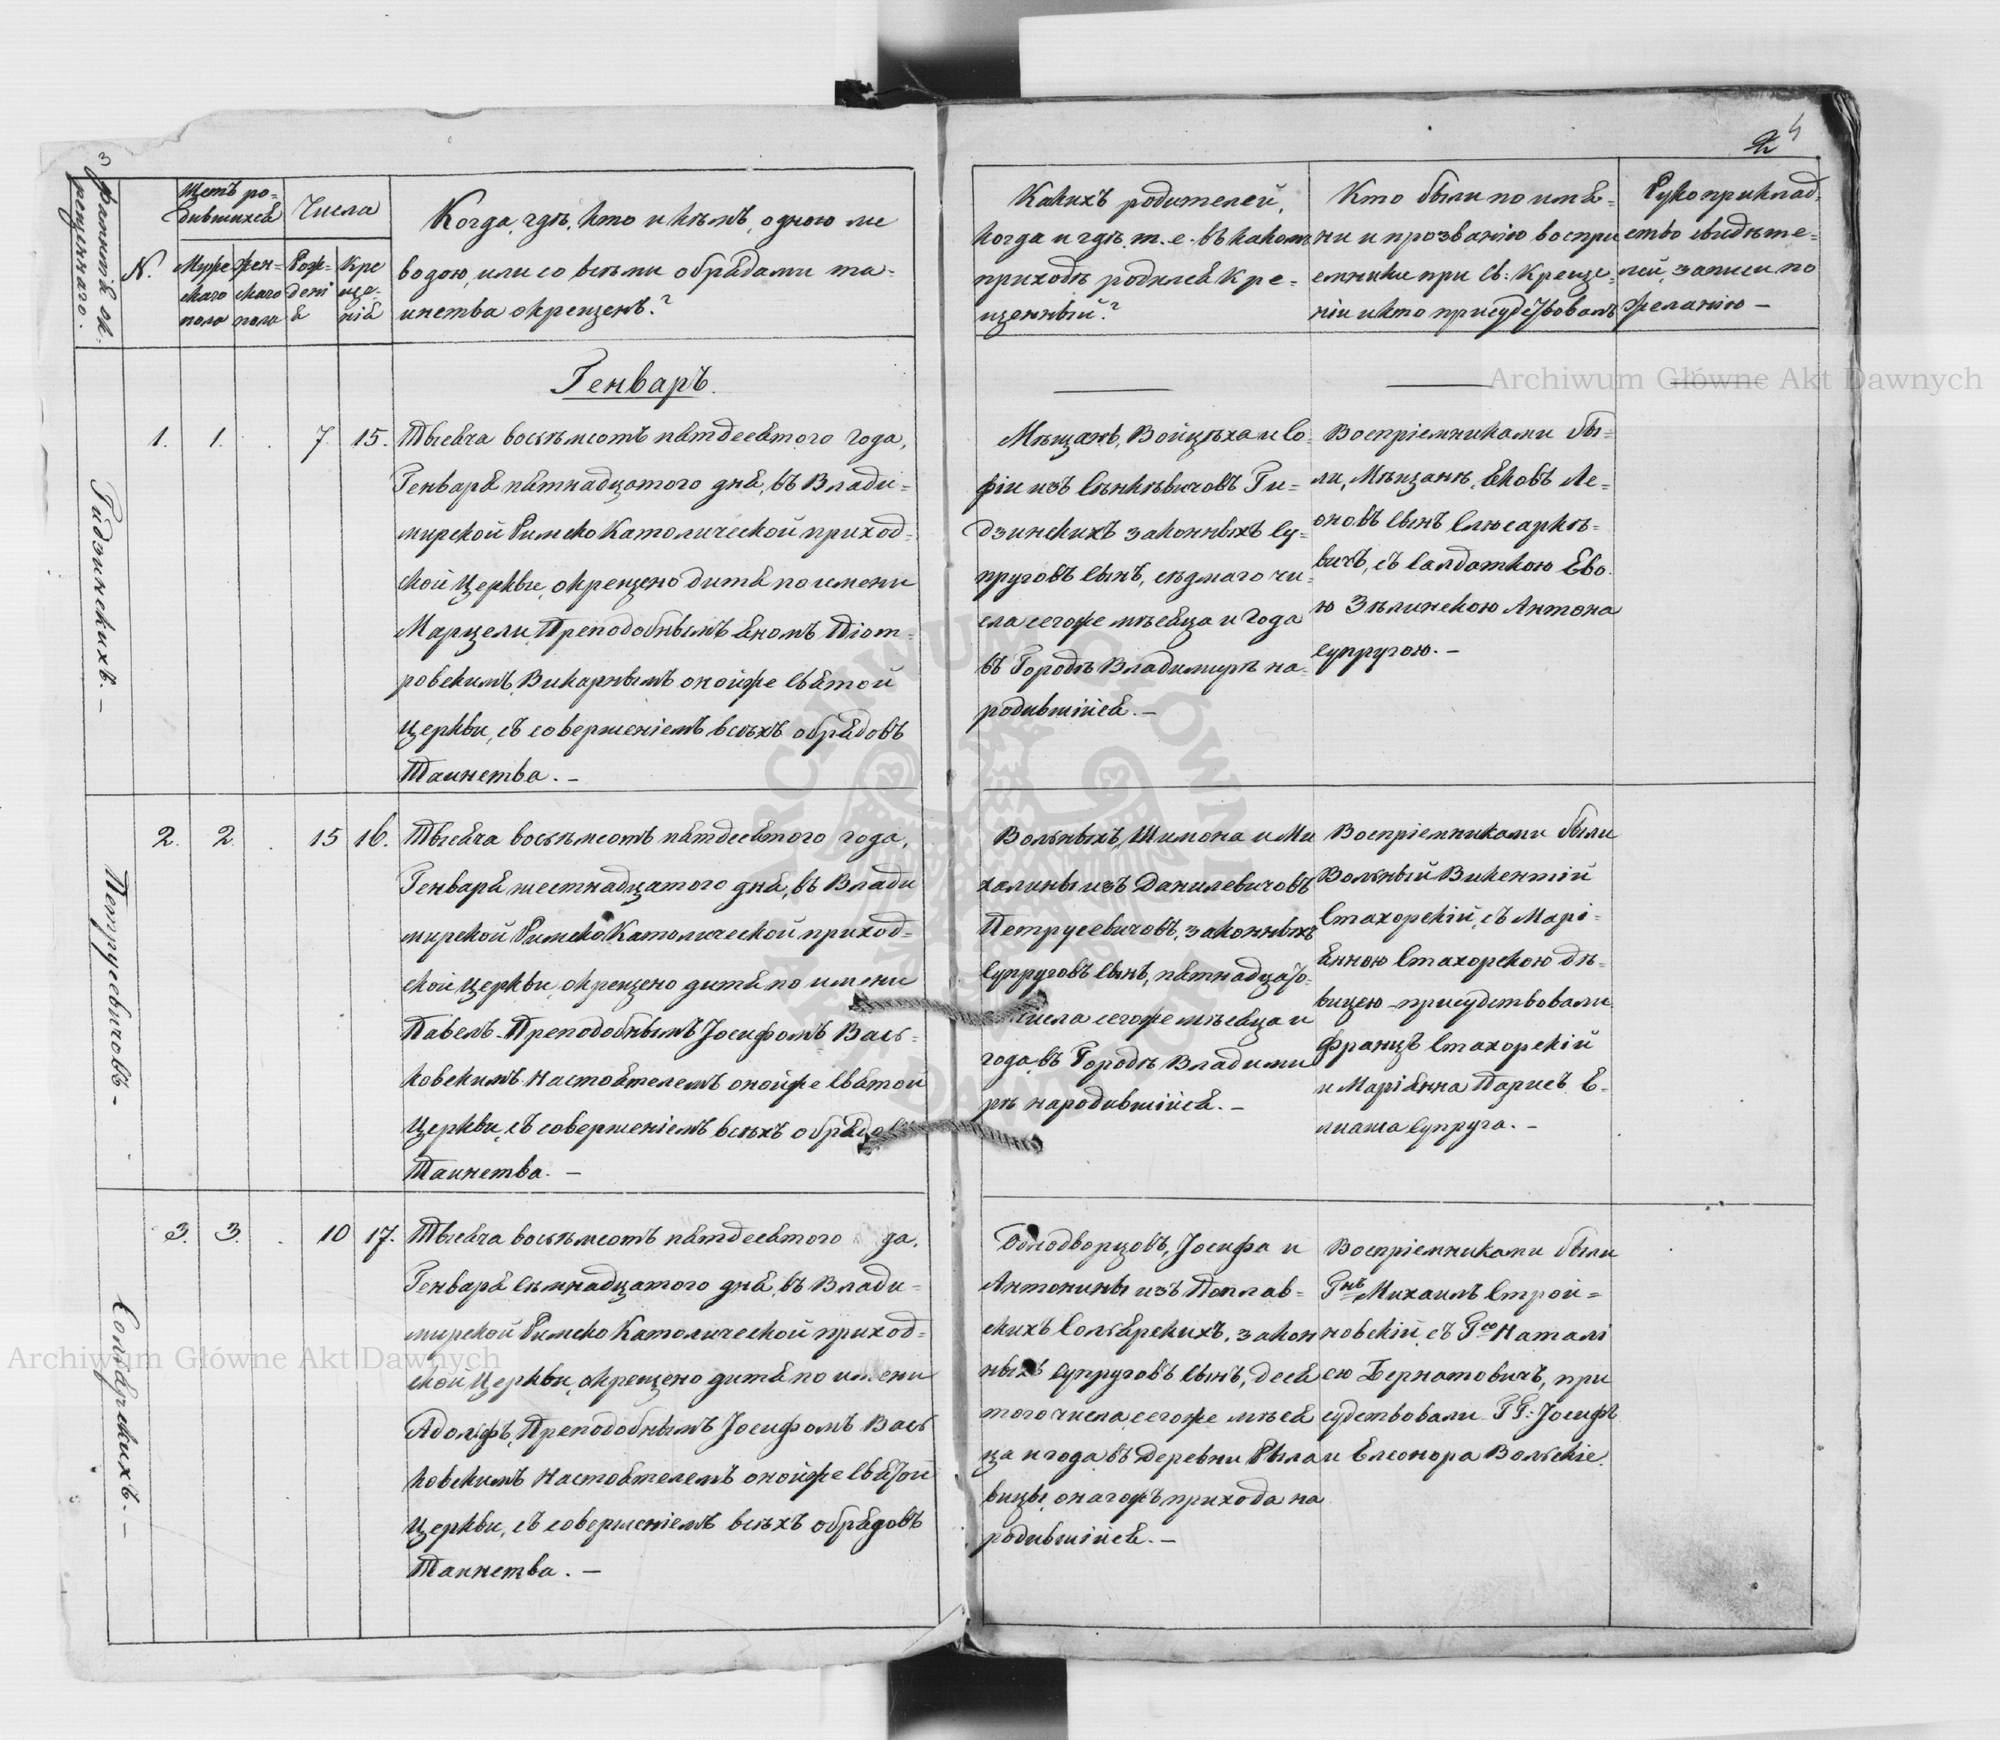 3
Фамилія ок-
рещеннаго.
N.
Щетъ ро-
дившихся
Муже
скаго
пола
Жен-
скаго
пола
Числа
Рож-
дені
я
Кре
ще-
нія
Когда, гдѣ, кто и кѣмъ, одною ли
водою, или со всѣми обрядами та-
инства окрещенъ?
Генварь.
Гидзинскихъ. –
1. 1. . 7 15.
Тысяча восьмьсотъ пятдесятого года,
Генваря пятнадцатого дня, въ Влади-
мирской Римско Католической приход-
ской Церкви, окрещено дитя по имени
Марцели, Преподобнымъ Яномъ Піот-
ровскимъ, Викарнымъ онойже Святой
Церкви, съ совершеніемъ всѣхъ обрядовъ
Таинства. –
Петрусевичовъ. -
2. 2. . 15 16.
Тысяча восьмьсотъ пятдесятого года,
Генваря шестнадцатого дня, въ Влади
мирской Римско Католической приход-
ской Церкви, окрещено дитя по имени
Павелъ. Преподобнымъ Іосифомъ Вась-
ковскимъ Настоятелемъ онойже Святой
Церкви, съ совершеніемъ всѣхъ обрядовъ
Таинства. –
Сольярскихъ. –
3. 3. . 10 17.
Тысяча восьмьсотъ пятдесятого года,
Генваря семнадцатого дня, въ Влади-
мирской Римско Католической приход-
ской Церкви, окрещено дитя по имени
Адольфъ, Преподобнымъ Іосифомъ Вась
ковскимъ Настоятелемъ онойже Святой
Церкви, съ совершеніемъ всѣхъ обрядовъ
Таинства. –
4
2
Какихъ родителей,
когда и гдѣ, т. е. въ какомъ
приходѣ родился кре-
щенный?
Кто были по имѣ-
ни и прозванію воспрі
емники при св: Креще-
ніи и кто присудствовалъ
Рукоприклад-
ство свидѣте-
лей, записи по
желанію –
Мѣщанъ, Войцѣха и Со-
фіи изъ Сѣнкѣвичовъ Ги-
дзинскихъ законныхъ Су-
пруговъ сынъ, седмаго чи-
сла сегоже мѣсяца и года
въ Городѣ Владимирѣ на-
родившійся. –
Воспріемниками бы-
ли, Мѣщанъ, Яковъ Ле-
оновъ сынъ Слюсаркѣ-
вичъ, съ Салдаткою Ево-
ю Зѣлинскою Антона
супругою. –
Вольныхъ, Шимона и Ми
халины изъ Данилевичовъ
Петрусевичовъ, законныхъ
Супруговъ сынъ, пятнадцато-
числа сегоже мѣсяца и
года, въ Городѣ Владими
рѣ народившійся. –
Воспріемниками были
Вольный Викентій
Стахорскій, съ Марі-
янною Стахорскою дѣ-
вицею – присудствовали
Францъ Стахорскій
и Маріянна Парисъ Е-
лиаша Супруга. –
Однодворцовъ, Іосифа и
Антонины изъ Поплав-
скихъ Сольярскихъ, закон
ныхъ супруговъ сынъ, деся
того числа, сегоже мѣся
ца и года, въ Деревни Рыла
вицы, онагожъ прихода на
родившійся. –
Воспріемниками были
Гнъ, Михаилъ Строй-
новскій, съ Гсо Натали
ею Бернатовичъ, при
судствовали ГГ: Іосифъ
и Елеонора Вольскіе.
Archiwum Główne Akt Dawnych
Archiwum Główne Akt Dawnych